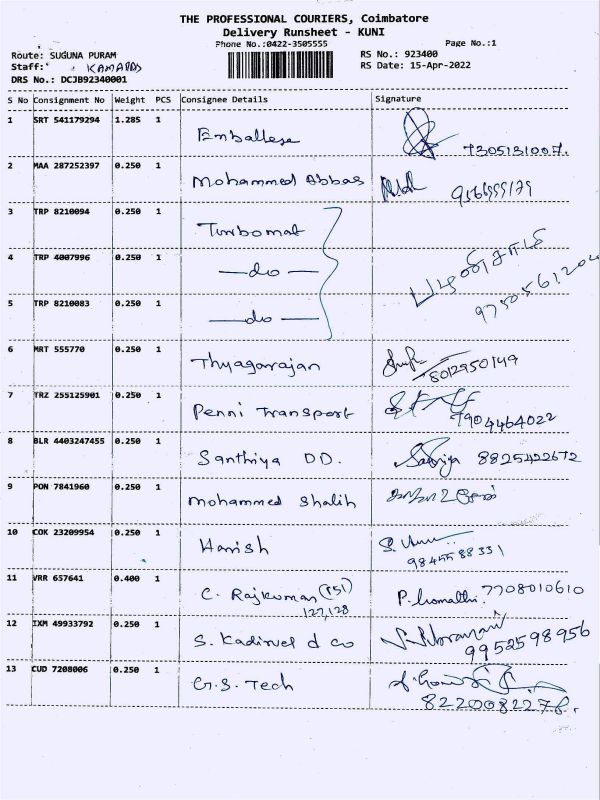 THE PROFESSIONAL COURIERS, Coimbatore
Delivery Runsheet - KUNI
Phone No.:0422-3505555 Page No.:1
Route: SUGUNA PURAM RS No.: 923400
Staff: RS Date: 15-Apr-2022
DRS No.: DCJB92340001
S No Consignment No Weight PCS Consignee Details Signature
1 SRT 541179294 1.285 1 Emballese 7305131007.
2 MAA 287252397 0.250 1 Mohammed Abbas
3 TRP 8210094 0.250 1 Turbomat
4 TRP 4007996 0.250 1 —do—
5 TRP 8210083 0.250 1 —do— 9750561204
6 MRT 555770 0.250 1 Thyagarajan 8012950149
7 TRZ 255125901 0.250 1 Penni Transport 7904464022
8 BLR 4403247455 0.250 1 Santhiya DD. 8825422672
9 PON 7841960 0.250 1 Mohammed Shalih
10 COK 23209954 0.250 1 Harish
9845588331
11 VRR 657641 0.400 1 C. Rajkumar (151) P. 7708010610
127,128
12 IXM 49933792 0.250 1 S. Kadirvel d co
9952598956
13 CUD 7208006 0.250 1 G.S. Tech
8220082278.